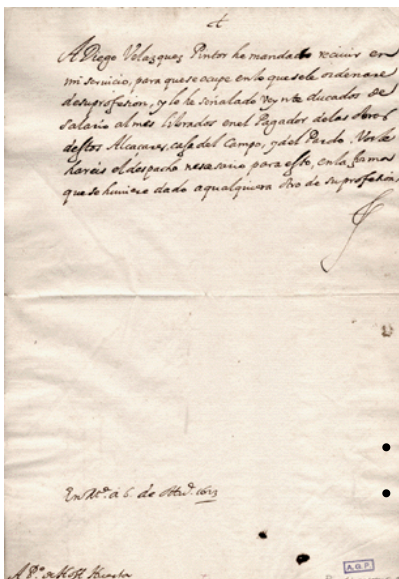 A Diego Velazquez Pintor he mandado reciuir en
mi seruicio, para que se ocupe en lo que se le ordenare
de su profesion, y le he señalado veynte ducados de
salario al mes librados en el Pagador de las obras
destos Alcaçares, casa del Campo, y del Pardo. Vos le
hareis el despacho nesesario para esto, en la forma
que se huuiere dado a qualquiera otro de su profesion,
En Md. a 6. de Otue. 1623
A Po. de Hoff Huerta
A.G.P.